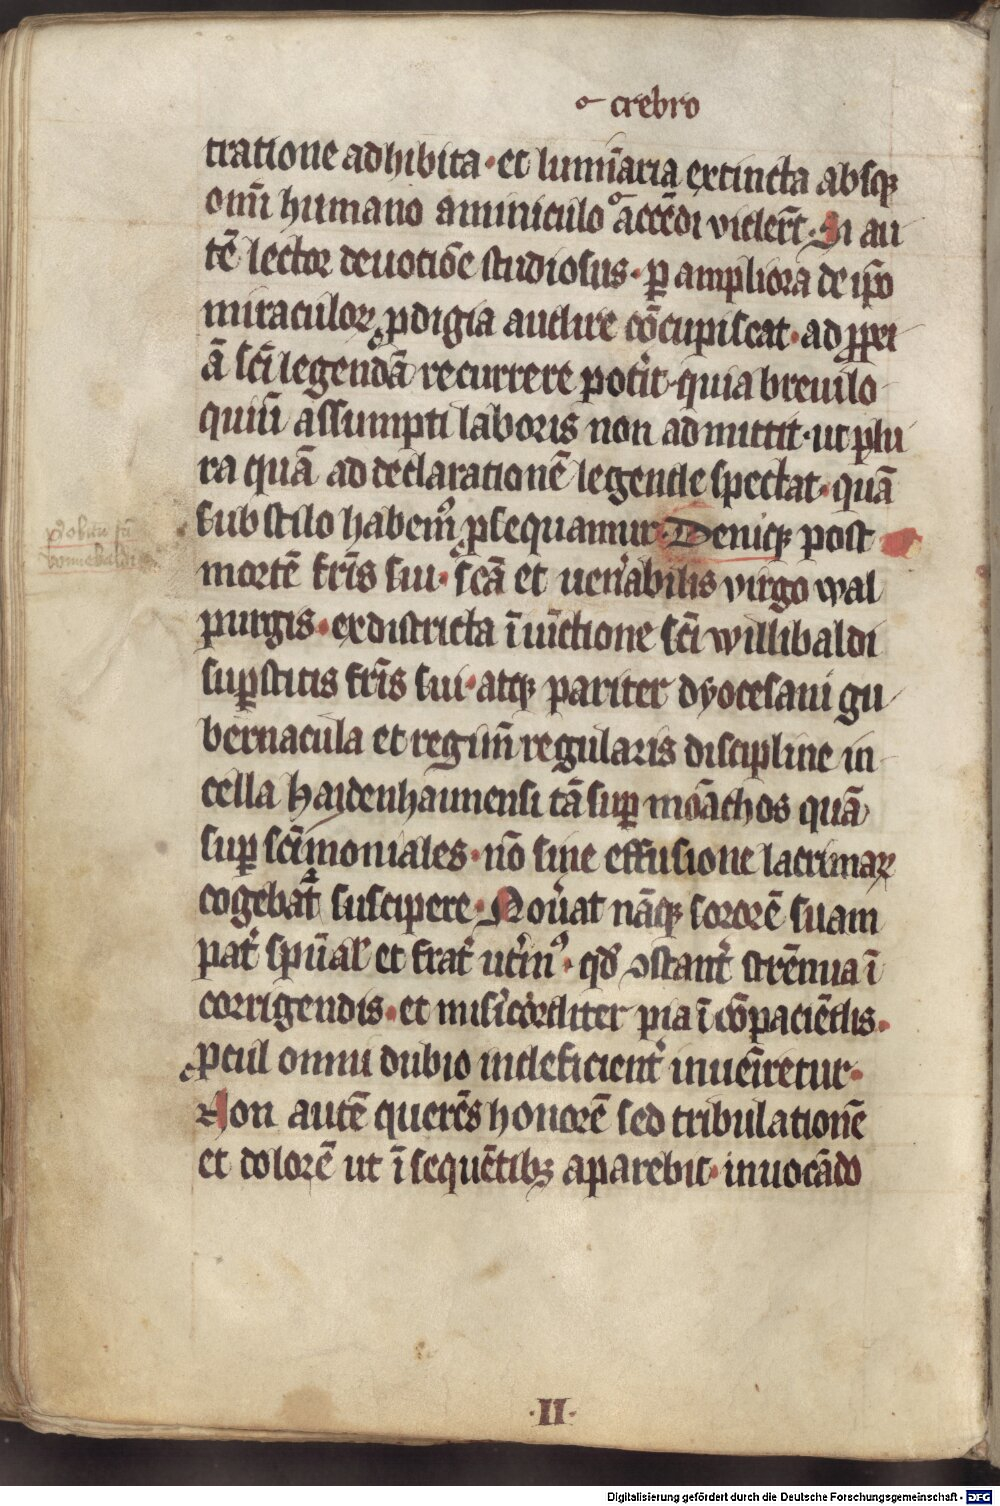 crebro
tratione adhibita · et lumi̅aria extincta absqꝫ
om̅i humano aminiculo acce̅di vider̅t · Si au
te̅ lector deuotio̅e studiosus · ꝑ ampliora de ip̅o
miraculoꝝ ꝓdigia audire co̅cupiscat · ad ꝓpri
a̅ sc̅i legenda̅ recurrere pot̕it · quia breuilo
quiu̅ assumpti laboris non admittit · ut plu
ra qua̅ ad declaratione̅ legende spectat · qua̅
sub stilo habemꝰ ꝓsequamur · Deniqꝫ post
morte̅ fr̅is sui · sc̅a et uen̕abilis virgo wal
purgis · ex districta i̅iu̅ctione sc̅i willibaldi
suꝑstitis fr̅is sui · atqꝫ pariter dyocesani gu
bernacula et regim̅ regularis discipline in
cella haidenhaimensi ta̅ suꝑ mo̅achos qua̅
suꝑ sc̅imoniales · no̅ sine effusione lacrimaꝝ
cogebat᷑ suscipere · Nou̕at na̅qꝫ sorore̅ suam
pat̕ spu̅al̕ et frat̕ ut̕inꝰ · qd̕ ꝯstant̕ stre̅nua i̅
corrigendis · et mis̕icorditer pia i̅ co̅pacie̅dis ·
ꝓcul omni dubio indeficient̕ inueni̅retur ·
Non aute̅ quere̅s honore̅ sed tribulatione̅
et dolore̅ ut i̅ seque̅tibꝫ aparebit · inuoca̅do
· II ·
Digitalisierung gefördert durch die Deutsche Forschungsgemeinschaft - DFG